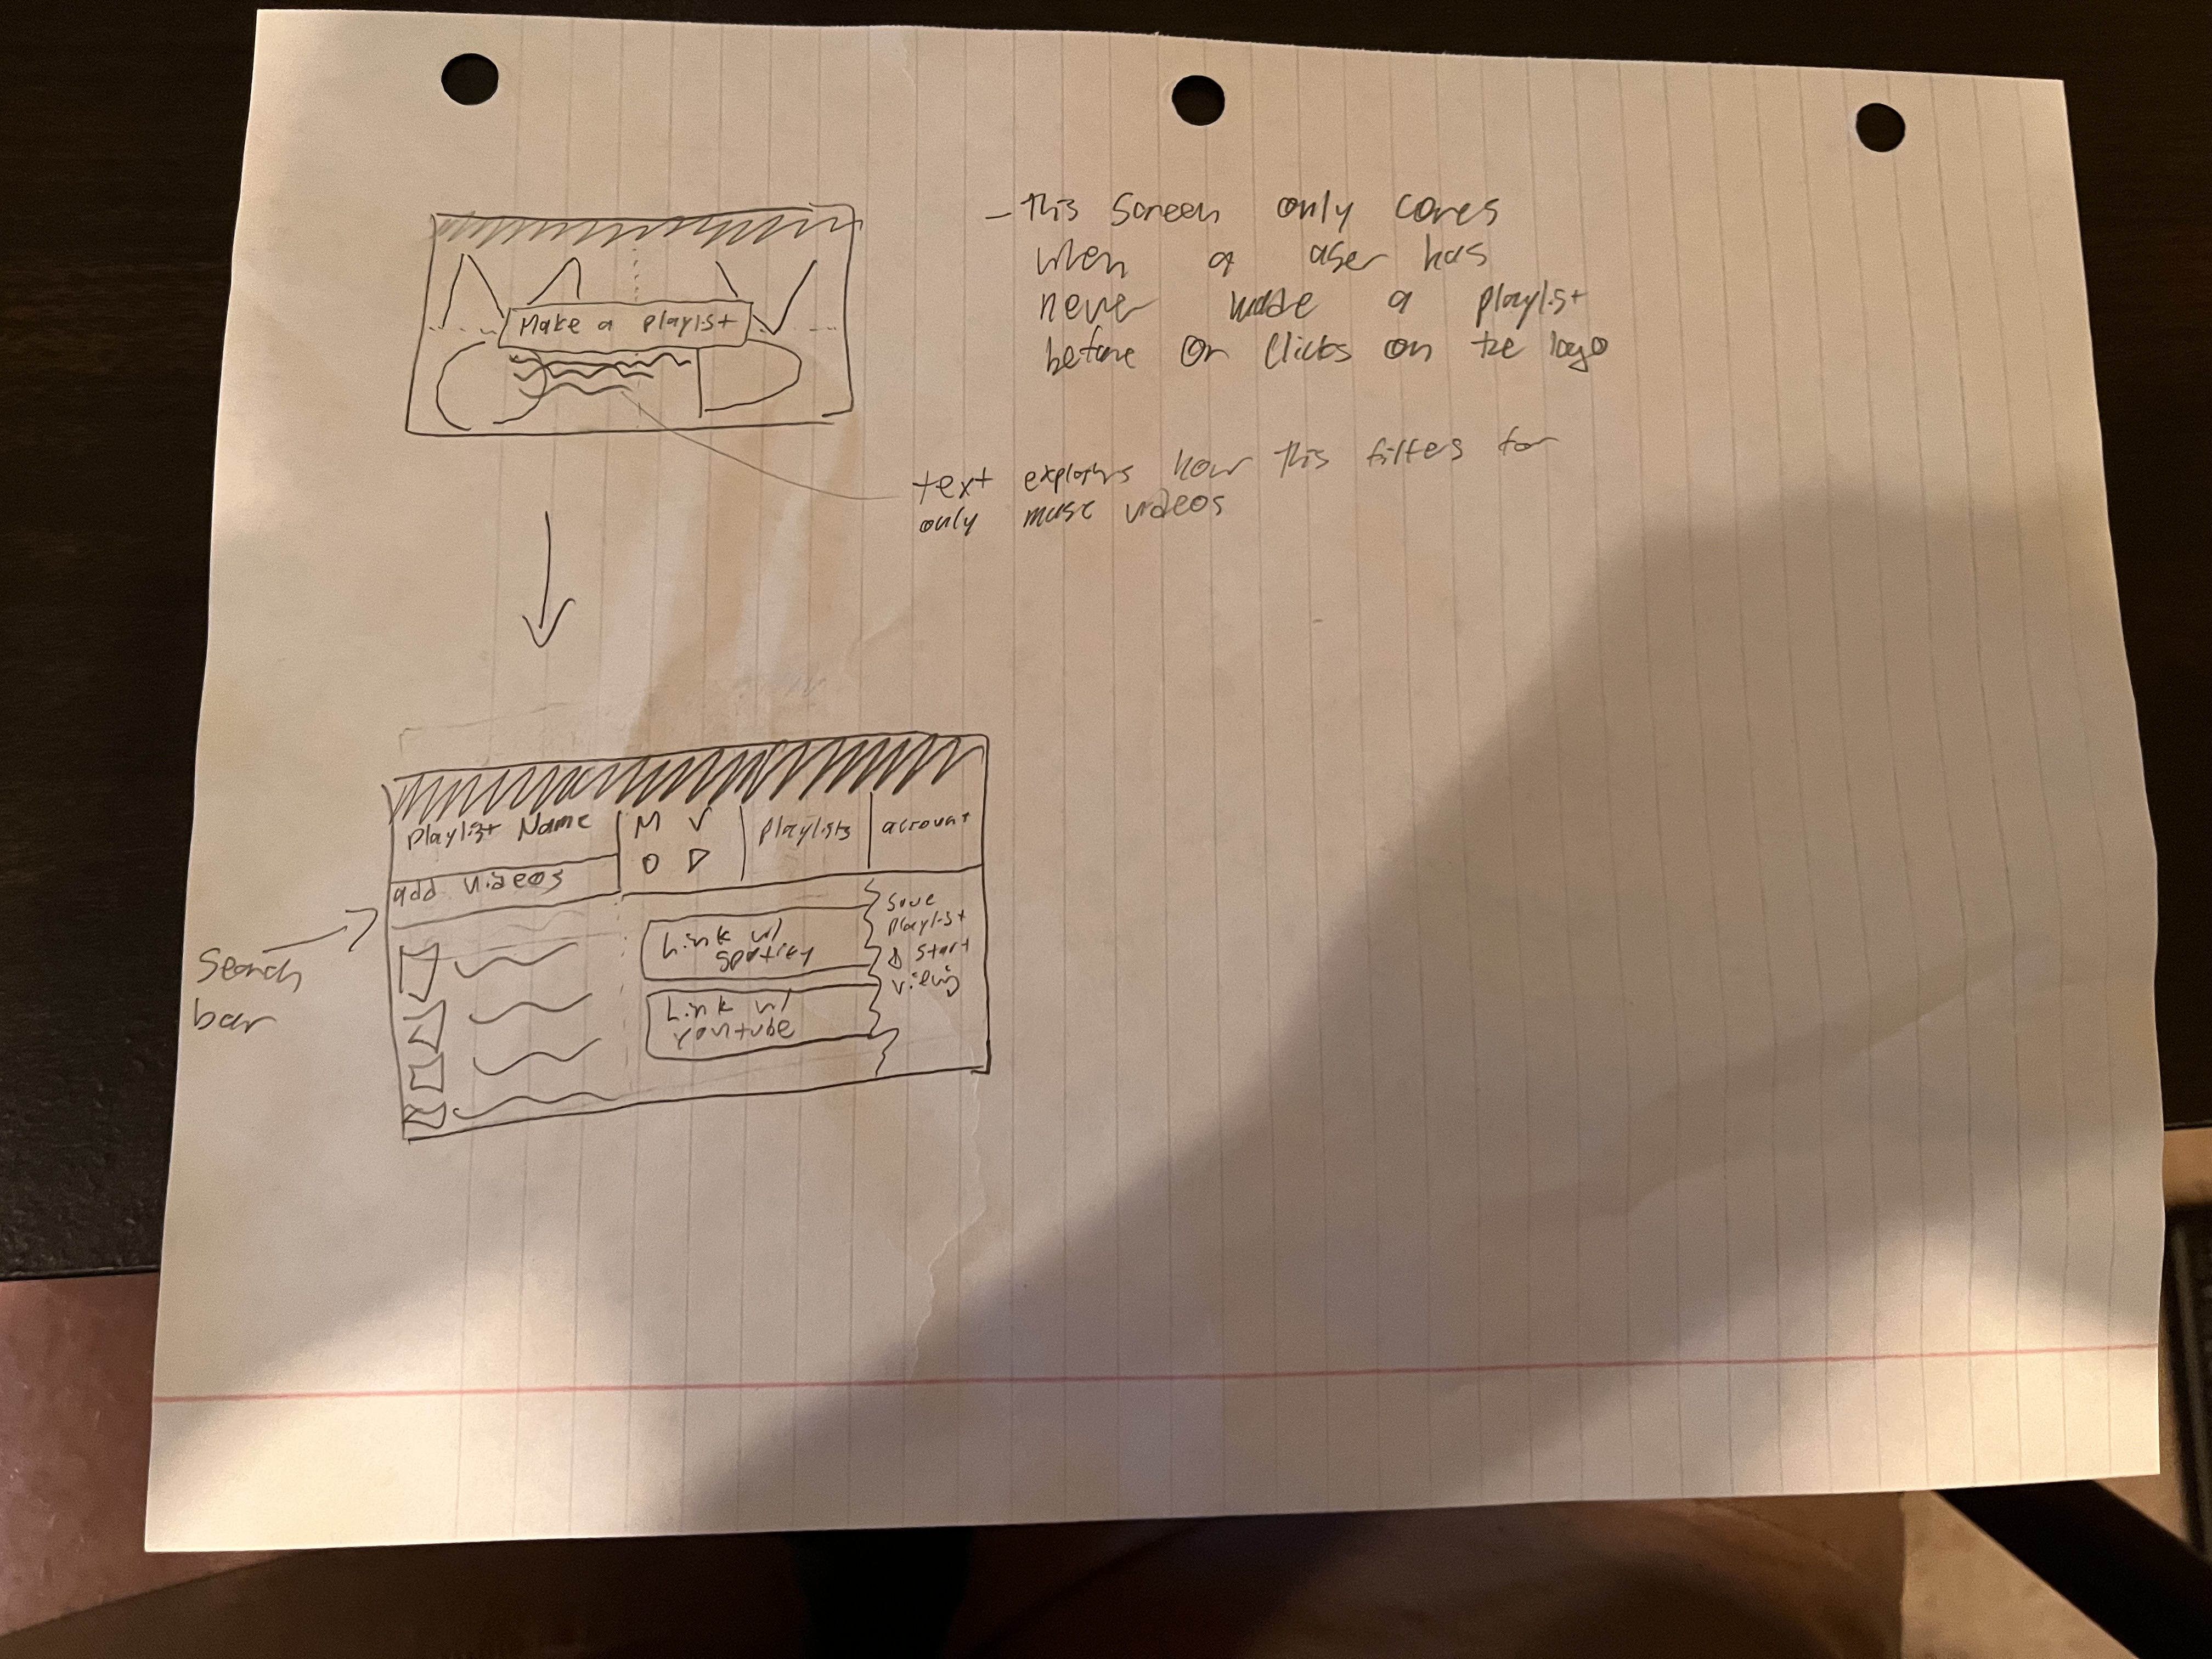 - This screen only comes
when a user has
never made a playlist
before or clicks on the logo
M V
Make a playlist
O D
text explains how this filters for
only music videos
Playlist Name
M V
O D
playlists
account
add videos
Search
bar
Link w/
spotify
Link w/
youtube
save
playlist
& start
viewing